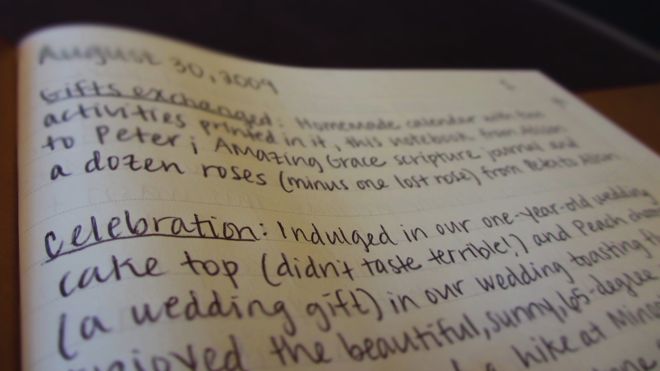 August 30, 2009
Gifts exchanged: Homemade calendar with fun
activities printed in it, this notebook from Alison
to Peter; Amazing Grace scripture journal and
a dozen roses (minus one lost rose) from Peter to Alison
Celebration: Indulged in our one-year-old wedding
cake top (didn't taste terrible!) and Peach
(a wedding gift) in our wedding toasting
enjoyed the beautiful, sunny, 65-degree
a hike at